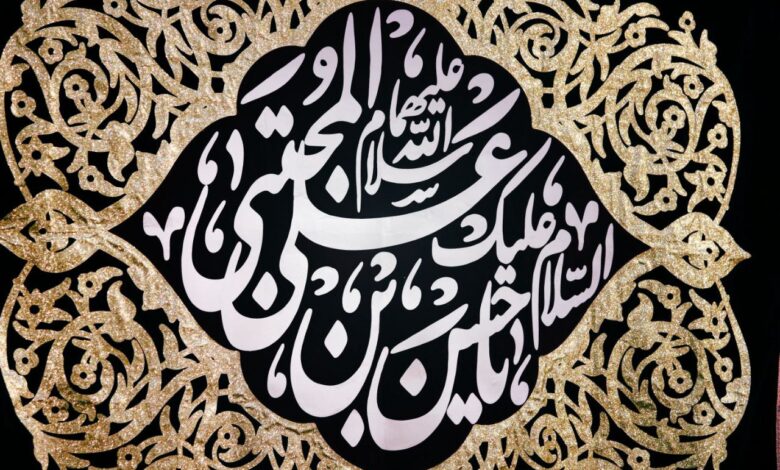 السّلام علیک
یا حسن بن علی المجتبی
سلام الله علیهما